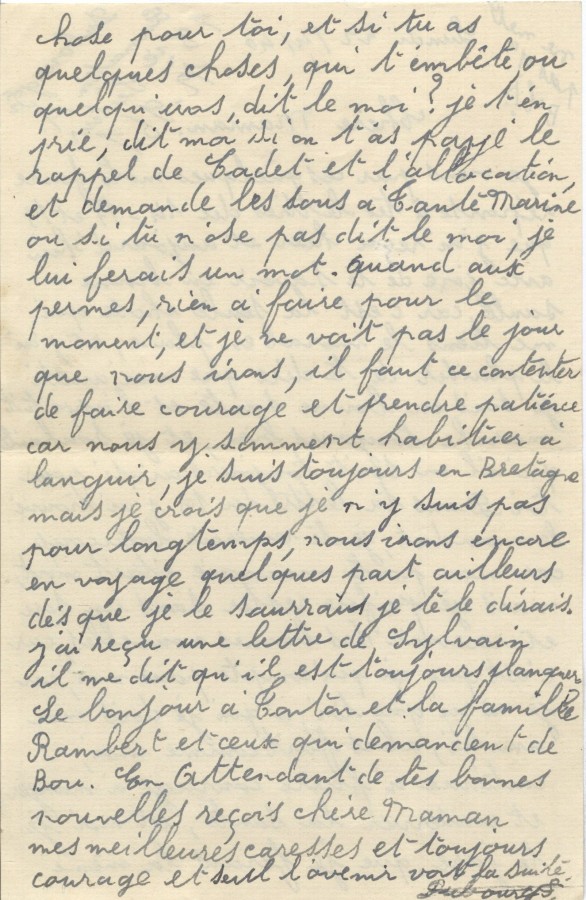 chose pour toi, et si tu as
quelques choses, qui t'embête, ou
quelqu'uns, dit le moi? je t'en
prie, dit moi si on t'as payé le
rappel de Cadet et l'allocation,
et demande les sous à Tante Marine
ou si tu n'ose pas dit le moi, je
lui ferais un mot. Quand aux
permes, rien à faire pour le
moment, et je ne voit pas le jour
que nous irons, il faut ce contenter
de faire courage et prendre patience
car nous y somment habituer à
languir, je suis toujours en Bretagne
mais je crois que je n'y suis pas
pour longtemps, nous irons encore
en voyage quelques part ailleurs
dès que je le saurrais je te le dirais.
j'ai reçu une lettre de Sylvain
il me dit qu'il est toujours planquer
Le bonjour à Tonton et la famille
Rambert et ceux qui demandent de
Bou. En Attendant de tes bonnes
nouvelles reçois chère Maman
mes meilleures caresses et toujours
courage et seul l'avenir voit la suite.
Dubourg S.